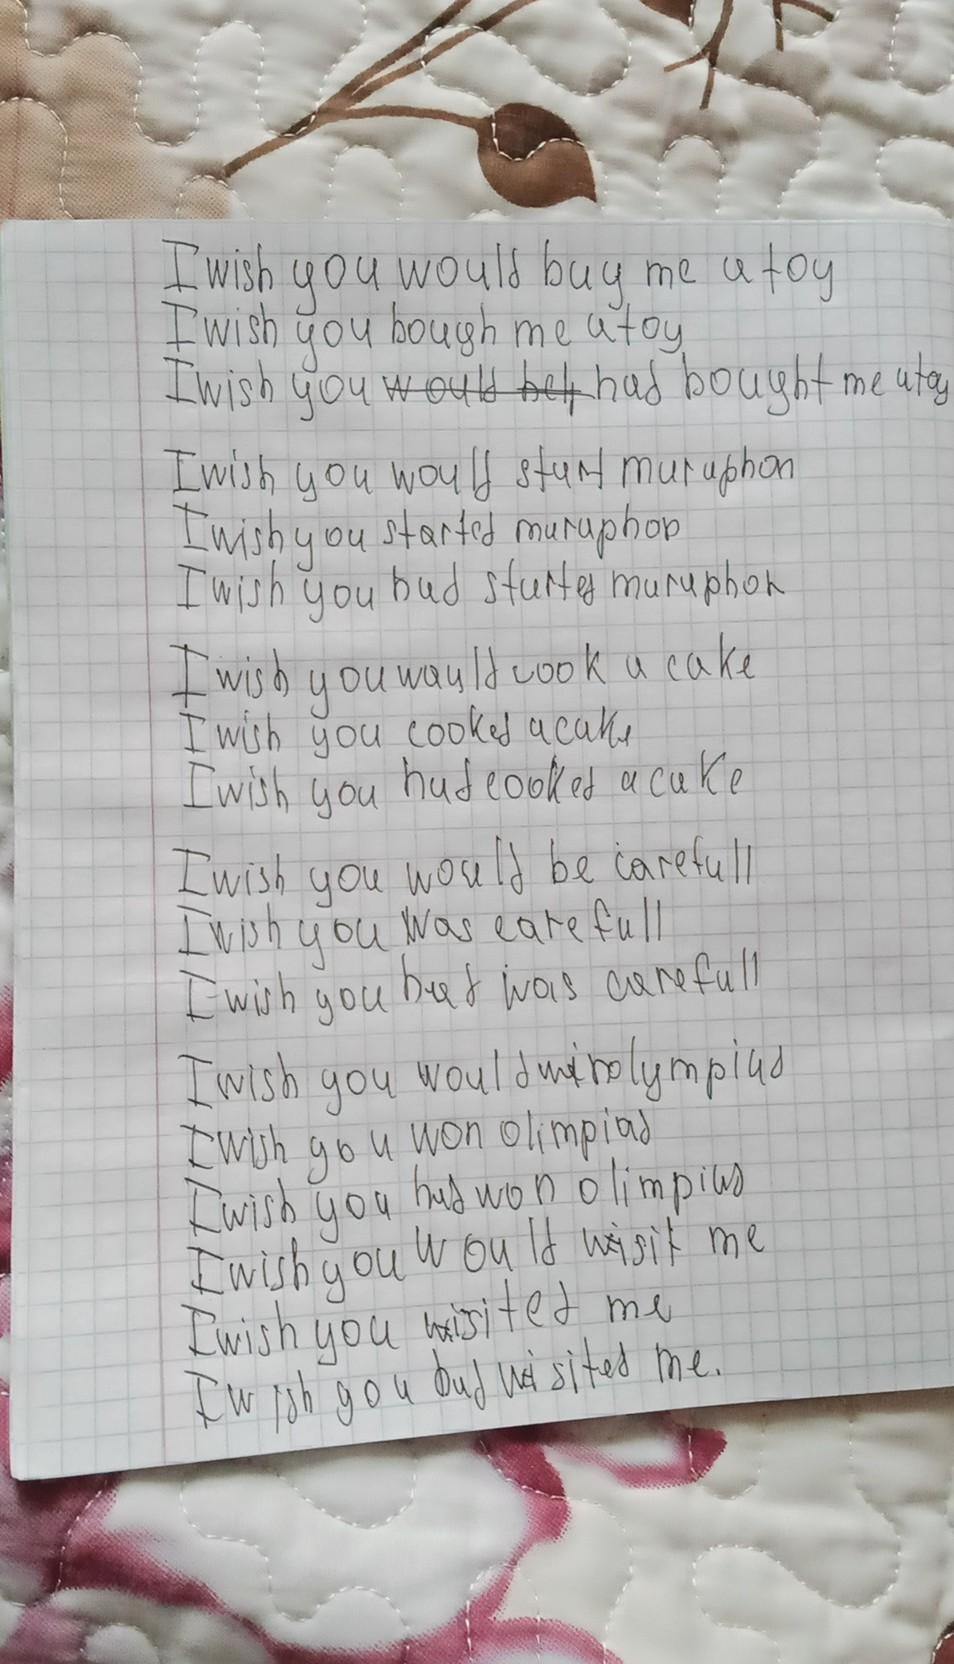 I wish you would buy me a toy
I wish you bough me a toy
I wish you had bought me a toy
I wish you would start maraphon
I wish you started maraphon
I wish you had started maraphon
I wish you wauld cook a cake
I wish you cooked a cake
I wish you had cooked a cake
I wish you would be carefull
I wish you was carefull
I wish you had was carefull
I wish you would win olympiad
I wish you won olimpiad
I wish you had won olimpiad
I wish you would wisit me
I wish you wisited me
I wish you had wisited me.